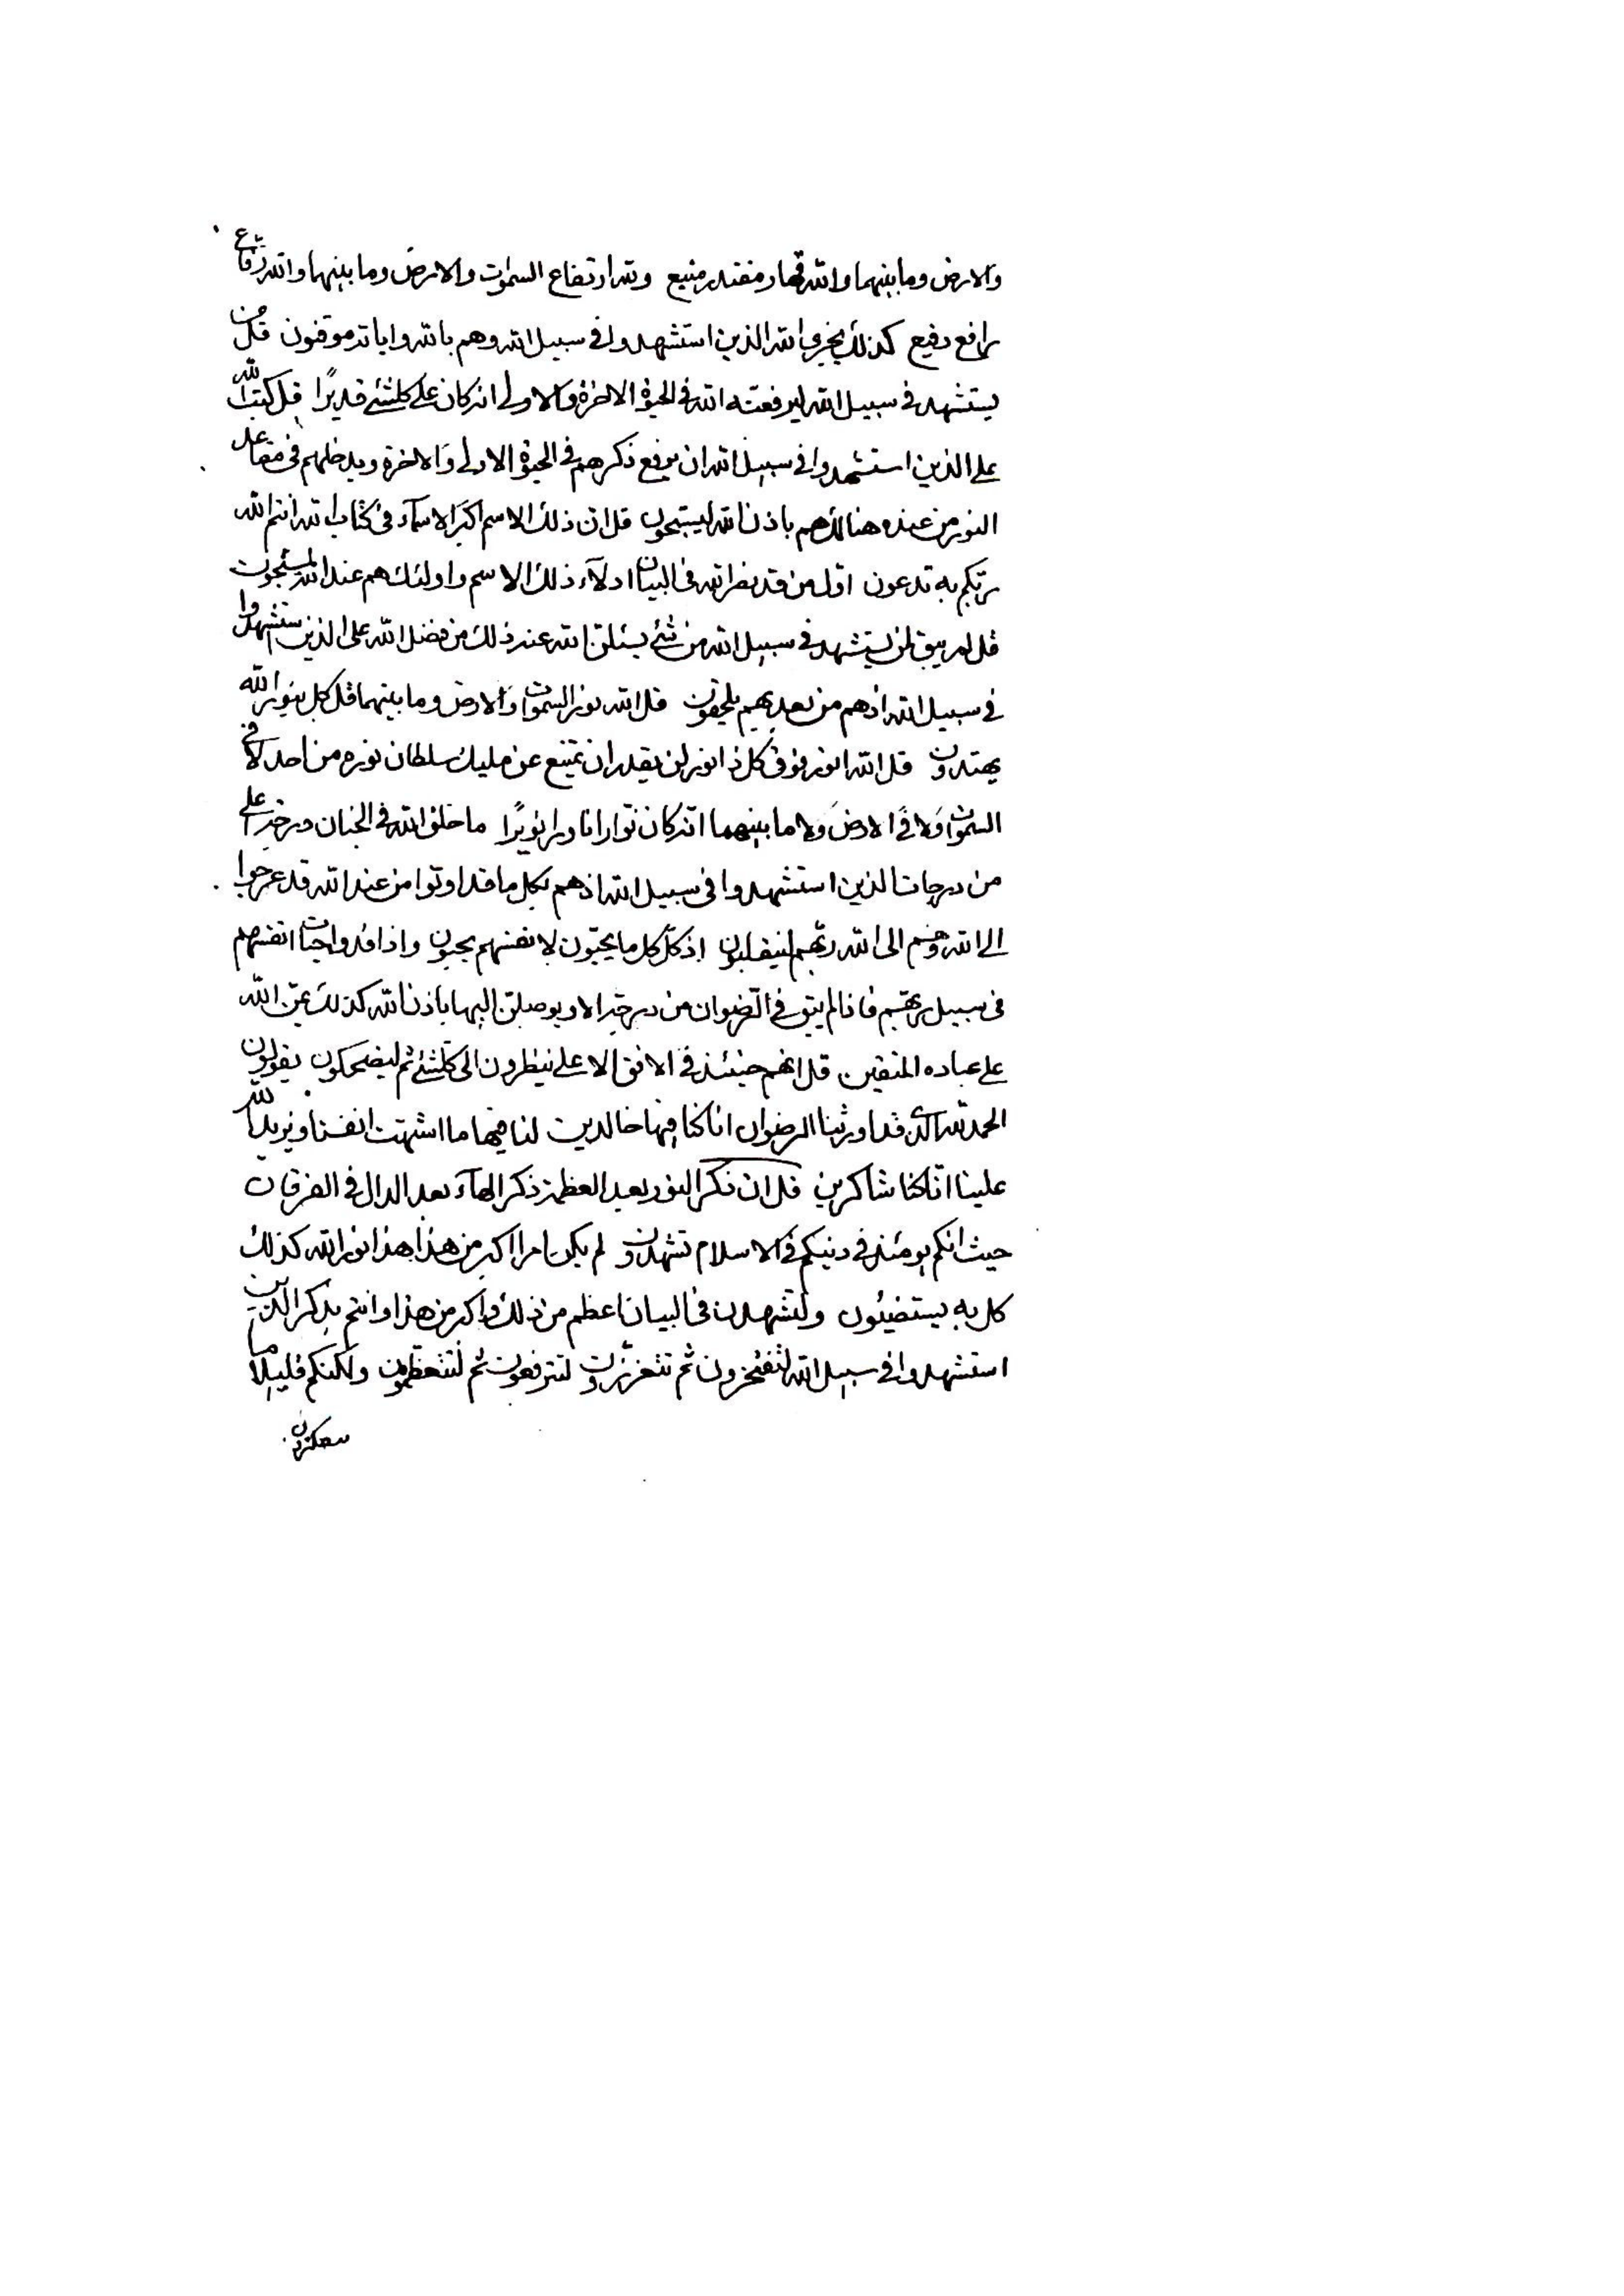 والارض وما بينهما والله قهار مقتدر منيع ولله ارتفاع السموات والارض وما بينهما والله رفاع
رافع رفيع كذلك يجزي الله الذين استشهدوا في سبيل الله وهم بالله واياته موقنون قل من
يستشهد في سبيل الله ليرفعنه الله في الحيوة الاخرة والاولى انه كان على كلشئ قديرا قل كتب الله
على الذين استشهدوا في سبيل الله ان يرفع ذكرهم في الحيوة الاولى والاخرة ويدخلهم في مقاعد
النور من عنده هنالك هم باذن الله ليسبحون قل ان ذلك الاسم اكبر الاسماء في كتاب الله انتم الله
ربكم به تدعون اول من قد نصر الله في البيان ادلاء ذلك الاسم واولئك هم عند الله
قل لم يبق لمن يستشهد في سبيل الله من شئ يسئلن الله عنه ذلك من فضل الله على الذين استشهدوا
في سبيل الله اذهم من بعد بهم يلحقون قل الله نور السموات والارض وما بينهما قل كل بنور الله
يهتدون قل الله انور فوق كل ذا نور لن يقدر ان يمتنع عن مليك سلطان نوره من احد لا في
السموات ولا في الارض ولا ما بينهما انه كان نوارا ناورا نويرا ما خلق الله في الجنان درجة اعلى
من درجات الذين استشهدوا في سبيل الله اذهم بكل ما قد اوتوا من عند الله قد عرجوا
الى الله وهم الى الله ربهم لينقلبون اذ كل كل ما يحبون لانفسهم يحبون واذا فدوا حيات انفسهم
في سبيل ربهم فاذا لم يبق في الرضوان من درجة الا ويوصلن اليها باذن الله كذلك يمن الله
على عباده المتقين قل انهم حينئذ في الافق الاعلى ينظرون الى كلشئ ثم ليضحكون يقولون
الحمد لله الذي قد اورثنا الرضوان انا كنا فيها خالدين لنا فيها ما اشتهت انفسنا ونريد الله
علينا انا كنا شاكرين قل ان ذكر النور بعد العظمة ذكر الهاء بعد الدال في الفرقان
حيث انكم يومئذ في دينكم في الاسلام تشهدون لم يكن امرا اكبر من هذا هذا نور الله كذلك
كل به يستضيئون ولتشهدن في البيان اعظم من ذلك واكبر من هذا وانتم بذكر الذين
استشهدوا في سبيل الله لتفتخرون ثم تتعززون لتترفعون ثم لتتعظمون ولكنكم قليلا ما